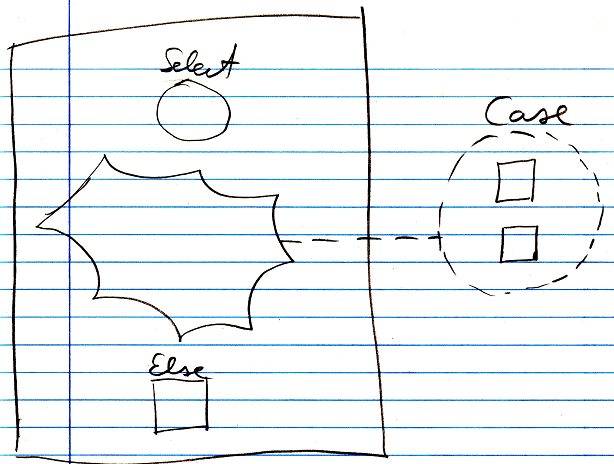 Select
Case
Else